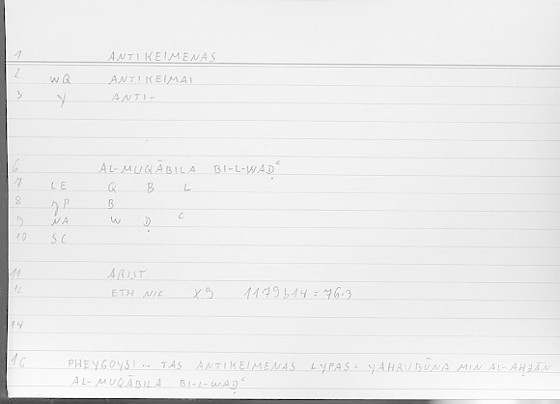 1 ANTIKEIMENAS
2 WQ ANTIKEIMAI
3 Y ANTI-
6 AL-MUQĀBILA BI-L-WAḌʿ
7 LE Q B L
8 GP B
9 NA W Ḍ ʿ
10 SC
11 ARIST
12 ETH NIC X9 1179b14 = 76.3
14
16 PHEYGOYSI .. TAS ANTIKEIMENAS LYPAS = YAHRUBŪNA MIN AL-AḤZĀN
AL-MUQĀBILA BI-L-WAḌʿ